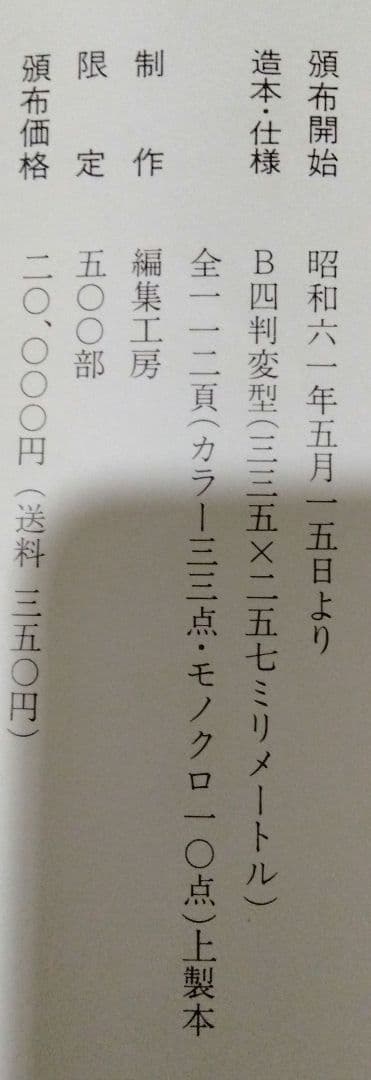 頒布開始 昭和六一年五月一五日より
造本・仕様 B四判変型(三三五×二五七ミリメートル)
全一一二頁(カラー三三点・モノクロ一〇点)上製本
制作 編集工房
限定 五〇〇部
頒布価格 二〇、〇〇〇円(送料 三五〇円)